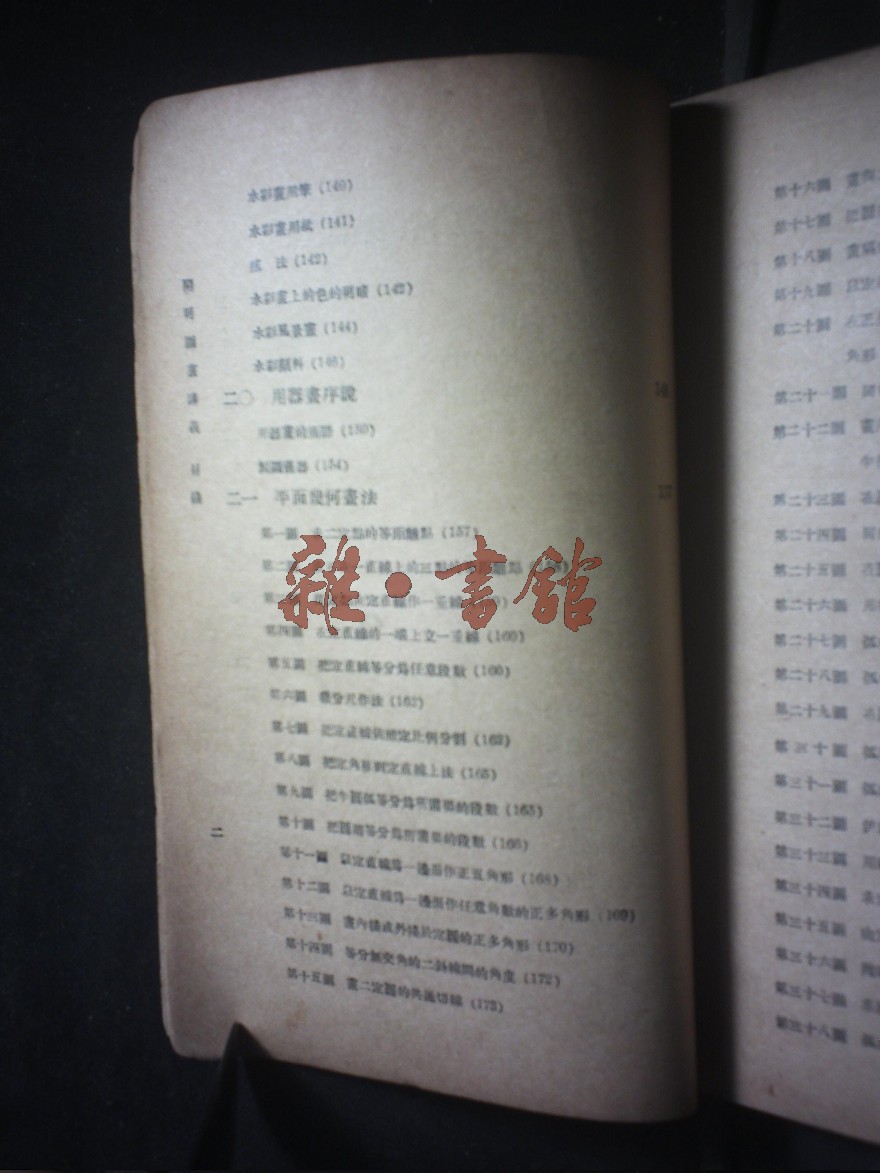 水彩畫用筆 (140)
水彩畫用紙 (141)
法 (142)
水彩畫上的色的明暗 (142)
水彩風景畫 (144)
水彩顏料 (146)
二〇 用器畫序說
用器畫的 (150)
製圖儀器 (154)
二一 平面幾何畫法
第一圖 求二定點的等距離點 (157)
第二 直線上的三點的
定直線作一垂線
第四圖 在定直線的一端上立一垂線 (160)
第五圖 把定直線等分爲任意段數 (160)
第六圖 分尺作法 (162)
第七圖 把定直線依照定比例分割 (162)
第八圖 把定角移到定直線上法 (165)
第九圖 把半圓弧等分爲所需要的段數 (165)
第十圖 把圓周等分爲所需要的段數 (166)
第十一圖 以定直線爲一邊而作正五角形 (168)
第十二圖 以定直線爲一邊而作任意角數的正多角形 (169)
第十三圖 畫內接或外接於定圓的正多角形 (170)
第十四圖 等分無交角的二斜線間的角度 (172)
第十五圖 畫二定圓的共通切線 (173)
開明圖畫講義 目錄
二
雜·書館
第十六圖 畫
第十七圖 把
第十八圖 畫
第十九圖 以定
第二十圖 在正
角形
第二十一圖
第二十二圖 畫
第二十三圖
第二十四圖
第二十五圖
第二十六圖
第二十七圖 弧
第二十八圖 弧
第二十九圖
第三十圖 弧
第三十一圖 弧
第三十二圖
第三十三圖
第三十四圖
第三十五圖
第三十六圖
第三十七圖
第三十八圖 弧